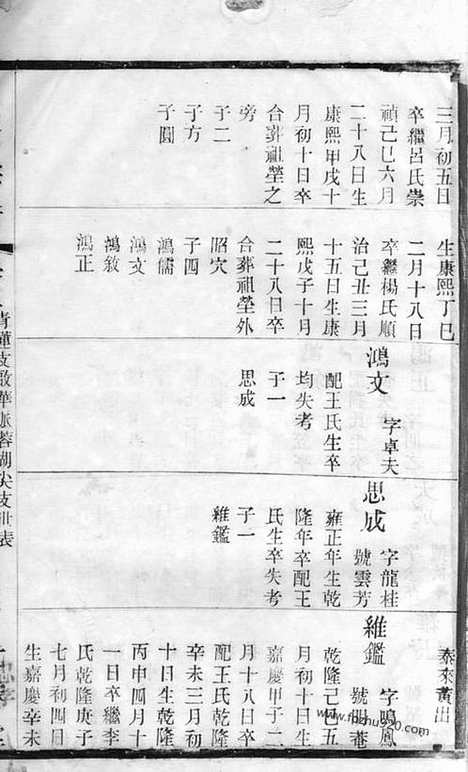 三月初五日
卒繼呂氏崇
禎己巳六月
二十八日生
康熙甲戌十
月初十日卒
合葬祖塋之
旁
子二
子方
子圓
生康熙丁巳
二月十八日
卒繼楊氏順
治己丑三月
十五日生康
熙戊子十月
二十八日卒
合葬祖塋外
昭穴
子四
鴻儒
鴻文
鴻敘
鴻正
鴻文 字卓夫
配王氏生卒
均失考
子一
思成
思成 字龍桂
號雲芳
雍正年生乾
隆年卒配王
氏生卒失考
子一
維鑑
維鑑 字鳴鳳
號明菴
乾隆己巳五
月初十日生
嘉慶甲子二
月十八日卒
配王氏乾隆
辛未三月初
十日生乾隆
丙申四月十
一日卒繼李
氏乾隆庚子
七月初四日
生嘉慶辛未
泰來黃出
青蓮支啟華派蓉湖尖支世表